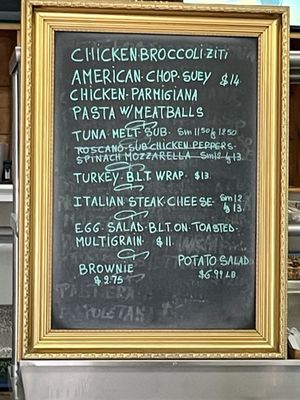 CHICKEN·BROCCOLI ZITI
AMERICAN·CHOP·SUEY $14
CHICKEN·PARMIGIANA
PASTA W/MEATBALLS
TUNA·MELT·SUB· Sm 11.50 lg 12.50
ROSCANO·SUB·CHICKEN·PEPPERS·
SPINACH MOZZARELLA Sm 12 lg 13.
TURKEY·B.L.T. WRAP· $13.
ITALIAN STEAK·CHEESE· Sm 12
lg 13.
EGG·SALAD·B.L.T ON·TOASTED·
MULTIGRAIN· $11.
BROWNIE
$2.75
POTATO SALAD
$6.99 LB